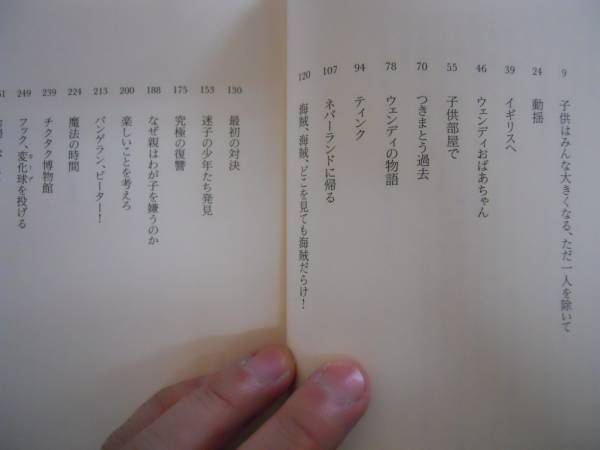 9 子供はみんな大きくなる、ただ一人を除いて
24 動揺
39 イギリスへ
46 ウェンディおばあちゃん
55 子供部屋で
70 つきまとう過去
78 ウェンディの物語
94 ティンク
107 ネバーランドに帰る
120 海賊、海賊、どこを見ても海賊だらけ！
130 最初の対決
153 迷子の少年たち発見
175 究極の復讐
188 なぜ親はわが子を嫌うのか
200 楽しいことを考えろ
213 バンザラン、ピーター！
224 魔法の時間
239 チクタク博物館
249 フック、変化球を投げる